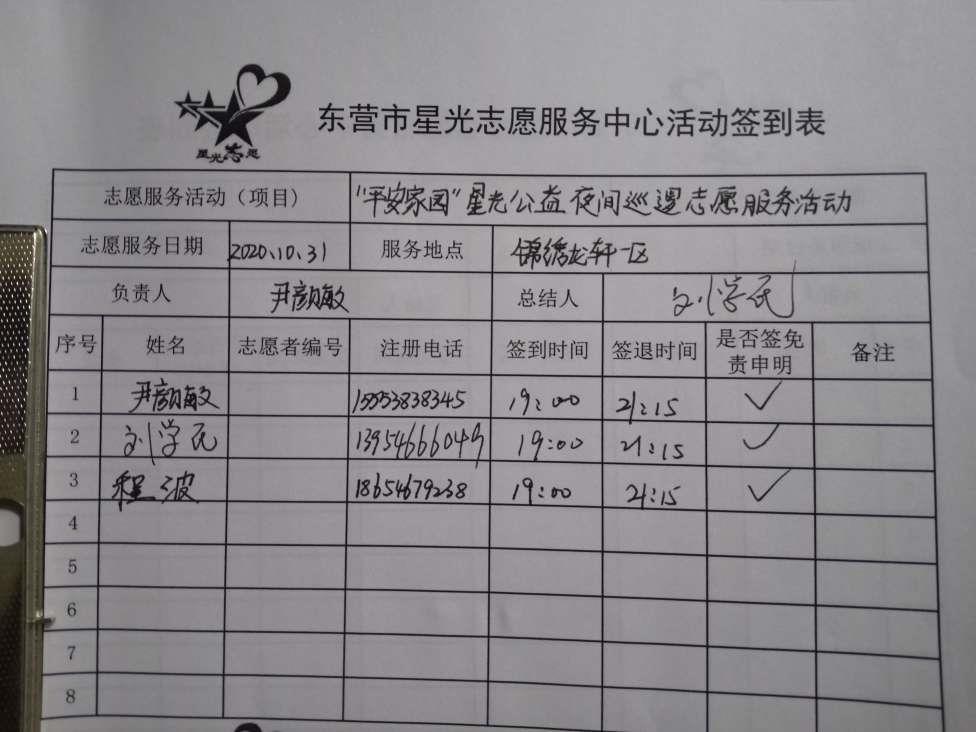 星光志愿
东营市星光志愿服务中心活动签到表
志愿服务活动（项目） "平安家园"星光公益夜间巡逻志愿服务活动
志愿服务日期 2020.10.31 服务地点 锦绣龙轩一区
负责人 尹彦敏 总结人 刘学民
序号 姓名 志愿者编号 注册电话 签到时间 签退时间 是否签免责申明 备注
1 尹彦敏 15553838345 19:00 21:15 ✓
2 刘学民 13954666049 19:00 21:15 ✓
3 程波 18654679238 19:00 21:15 ✓
4
5
6
7
8